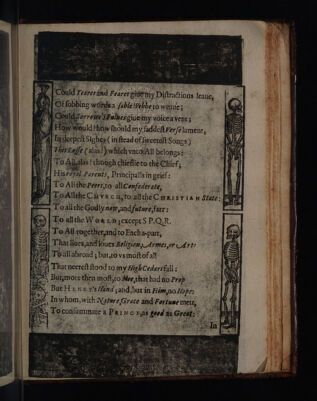 Could Teares and Feares giue my Distractions leaue,
Of sobbing words a sable Webbe to weaue;
Could Sorrowe's Fulnes giue my voice a vent;
How would, how should my saddest Verse lament,
In deepest Sighes (in stead of sweetest Songs)
This Losse (alas!) which vnto All belongs:
To All, alas! though chieflie to the Chief,
His royal Parents, Principalls in grief:
To All the Peeres, to all Confederate,
To All the CHVRCH, to all the CHRISTIAN State:
To all the Godly now, and future, farr:
To all the WORLD; except S.P.Q.R.
To All together, and to Each a-part,
That liues, and loues Religion, Armes, or Art:
To all abroad; but, to vs most of all
That neerest stood to my High Cedars fall:
But, more then most, to Mee, that had no Prop
But HENRY's Hand; and, but in Him, no Hope:
In whom, with Nature, Grace and Fortune mett,
To consummate a PRINCE, as good as Great:
In